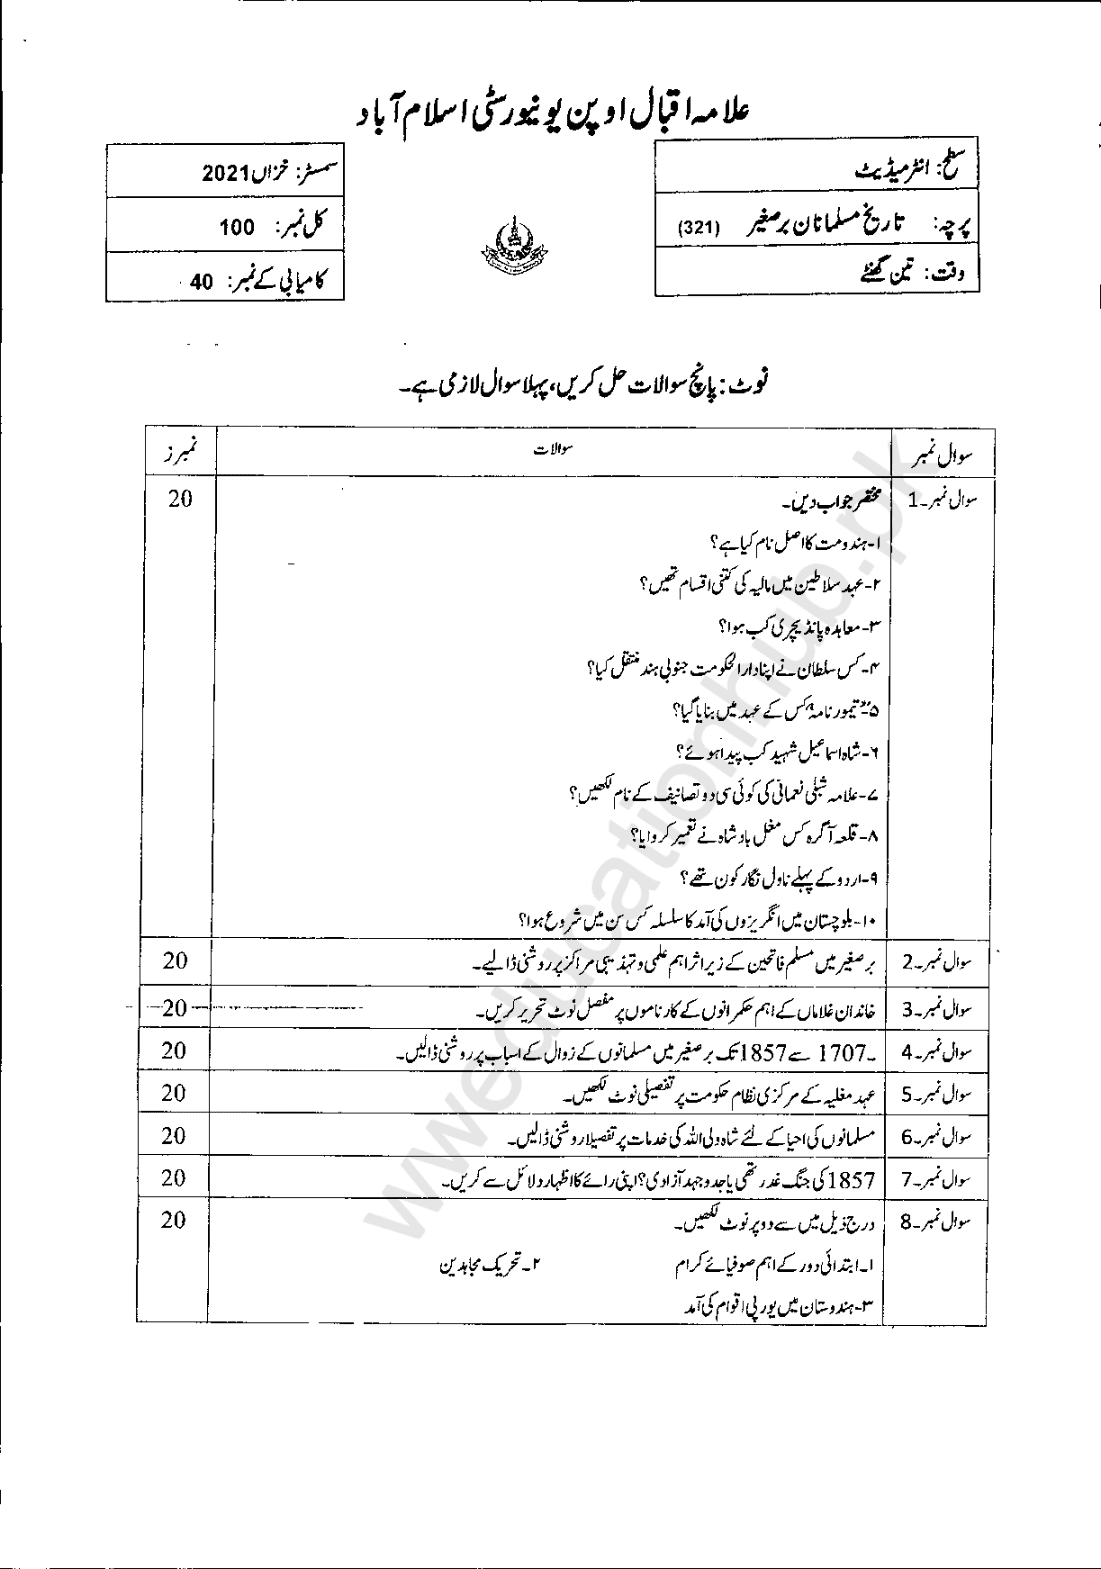 علامہ اقبال اوپن یونیورسٹی اسلام آباد
سطح: انٹرمیڈیٹ
پرچہ: تاریخ مسلمانان برصغیر (321)
وقت: تین گھنٹے
سمسٹر: خزاں 2021
کل نمبر: 100
کامیابی کے نمبر: 40
نوٹ: پانچ سوالات حل کریں، پہلا سوال لازمی ہے۔
سوال نمبر سوالات نمبرز
سوال نمبر۔1 مختصر جواب دیں۔ 20
۱-ہندومت کا اصل نام کیا ہے؟
۲-عہد سلاطین میں مالیہ کی کتنی اقسام تھیں؟
۳-معاہدہ پانڈیچری کب ہوا؟
۴-کس سلطان نے اپنا دارالحکومت جنوبی ہند منتقل کیا؟
۵-"تیمور نامہ" کس کے عہد میں بنایا گیا؟
۶-شاہ اسماعیل شہید کب پیدا ہوئے؟
۷-علامہ شبلی نعمانی کی کوئی سی دو تصانیف کے نام لکھیں؟
۸-قلعہ آگرہ کس مغل بادشاہ نے تعمیر کروایا؟
۹-اردو کے پہلے ناول نگار کون تھے؟
۱۰-بلوچستان میں انگریزوں کی آمد کا سلسلہ کس سن میں شروع ہوا؟
سوال نمبر۔2 برصغیر میں مسلم فاتحین کے زیر اثر اہم علمی و تہذیبی مراکز پر روشنی ڈالیے۔ 20
سوال نمبر۔3 خاندان غلاماں کے اہم حکمرانوں کے کارناموں پر مفصل نوٹ تحریر کریں۔ 20
سوال نمبر۔4 ۔1707 سے 1857 تک برصغیر میں مسلمانوں کے زوال کے اسباب پر روشنی ڈالیں۔ 20
سوال نمبر۔5 عہد مغلیہ کے مرکزی نظام حکومت پر تفصیلی نوٹ لکھیں۔ 20
سوال نمبر۔6 مسلمانوں کی احیا کے لئے شاہ ولی اللہ کی خدمات پر تفصیلا روشنی ڈالیں۔ 20
سوال نمبر۔7 1857 کی جنگ غدر تھی یا جدوجہد آزادی؟ اپنی رائے کا اظہار دلائل سے کریں۔ 20
سوال نمبر۔8 درج ذیل میں سے دو پر نوٹ لکھیں۔ 20
۱۔ابتدائی دور کے اہم صوفیائے کرام ۲۔تحریک مجاہدین
۳-ہندوستان میں یورپی اقوام کی آمد